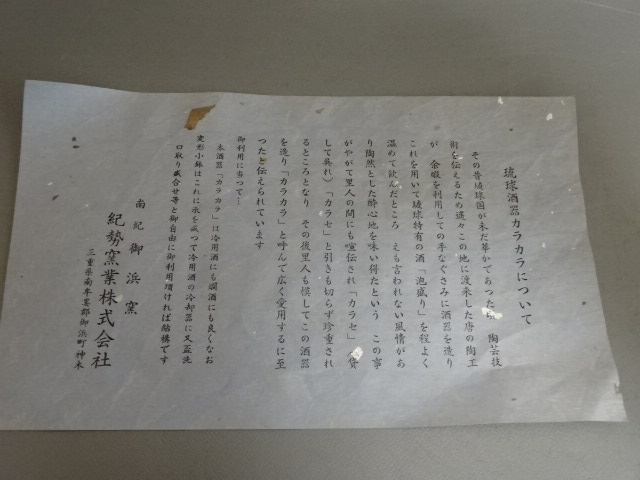 琉球酒器カラカラについて
その昔琉球国が未だ華かであった頃 陶芸技
術を伝えるため遥々この地に渡来した唐の陶工
が 余暇を利用しての手なぐさみに酒器を造り
これを用いて琉球特有の酒「泡盛り」を程よく
温めて飲んだところ えも言われない風情があ
り陶然とした酔心地を味い得たという この事
がやがて里人の間にも喧伝され「カラセ」(貸
して呉れ)「カラセ」と引きも切らず珍重され
るところとなり その後里人も模してこの酒器
を造り「カラカラ」と呼んで広く愛用するに至
つたと伝えられています
御利用に当つて…
本酒器「カラカラ」は冷用酒にも燗酒にも良くなお
変形小鉢はこれに氷を或つて冷用酒の冷却器に又盃洗
口取り盛合せ等と御自由に御利用頂ければ結構です
南紀御浜窯
紀勢窯業株式会社
三重県南牟婁郡御浜町神木